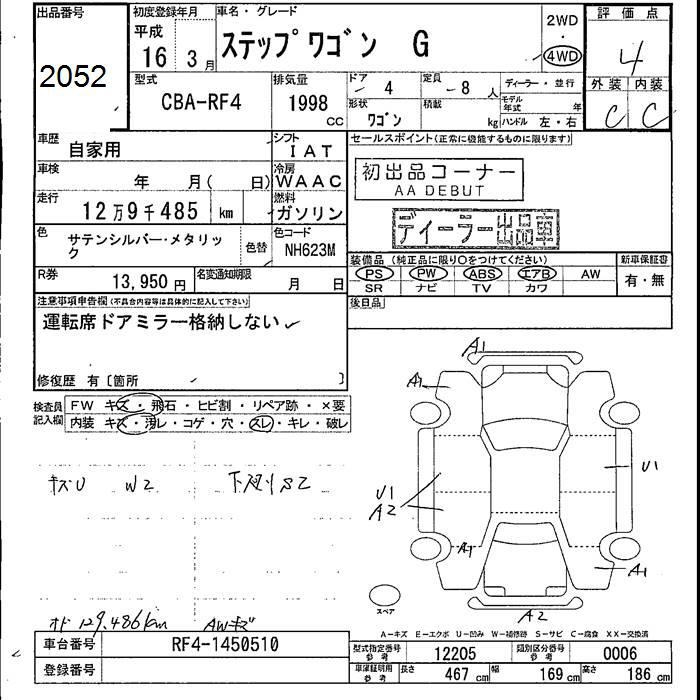 出品番号
2052
初度登録年月
平成
16年 3月
車名・グレード
ステップ ワゴン G
2WD
・
4WD
評価点
4
外装 内装
C C
型式
CBA-RF4
排気量
1998 CC
ドア
4
定員
8 人
形状
ワゴン
積載
kg
ディーラー・並行
モデル年式 年
ハンドル 左・右
車歴
自家用
シフト
IAT
車検
年 月( 日)
冷房
WAAC
走行
12万9千485 km
燃料
ガソリン
色
サテンシルバー・メタリック
色替
色コード
NH623M
R券
13,950円
名変通知期限
月 日
セールスポイント(正常に機能するものに限ります)
初出品コーナー
AA DEBUT
ディーラー出品車
装備品(純正品に限り○をつけてください)
PS PW ABS エアB AW
SR ナビ TV カワ
新車保証書
有・無
後日品
注意事項申告欄(不具合内容等は具体的に記入して下さい)
運転席ドアミラー格納しない
修復歴 有〔箇所 〕
検査員記入欄
FW キズ・飛石・ヒビ割・リペア跡・×要
内装 キズ・汚レ・コゲ・穴・スレ・キレ・破レ
キズU W2 下廻りS2
オド129,486km AWキズ
A1
A1
U1
U1
A2
A1
A1
A2
スペア
A−キズ E−エクボ U−凹み W−補修跡 S−サビ C−腐食 XX−交換済
車台番号
RF4-1450510
登録番号
型式指定番号参考
12205
類別区分番号参考
0006
車庫証明用参考
長さ 467 cm
幅 169 cm
高さ 186 cm